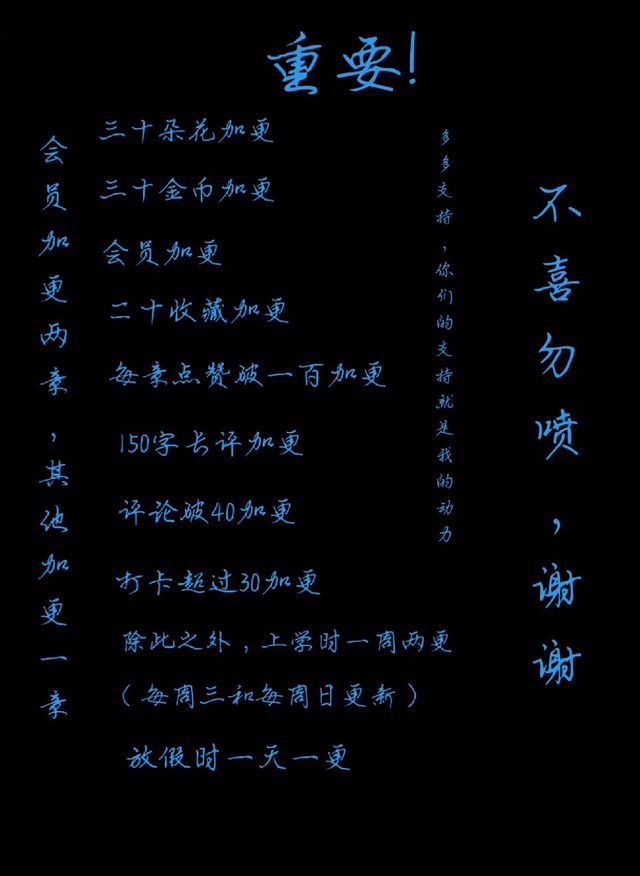 重要!
会员加更两章,其他加更一章
三十朵花加更
三十金币加更
会员加更
二十收藏加更
每章点赞破一百加更
150字长评加更
评论破40加更
打卡超过30加更
除此之外,上学时一周两更
(每周三和每周日更新)
放假时一天一更
多多支持,你们的支持就是我的动力
不喜勿喷,谢谢